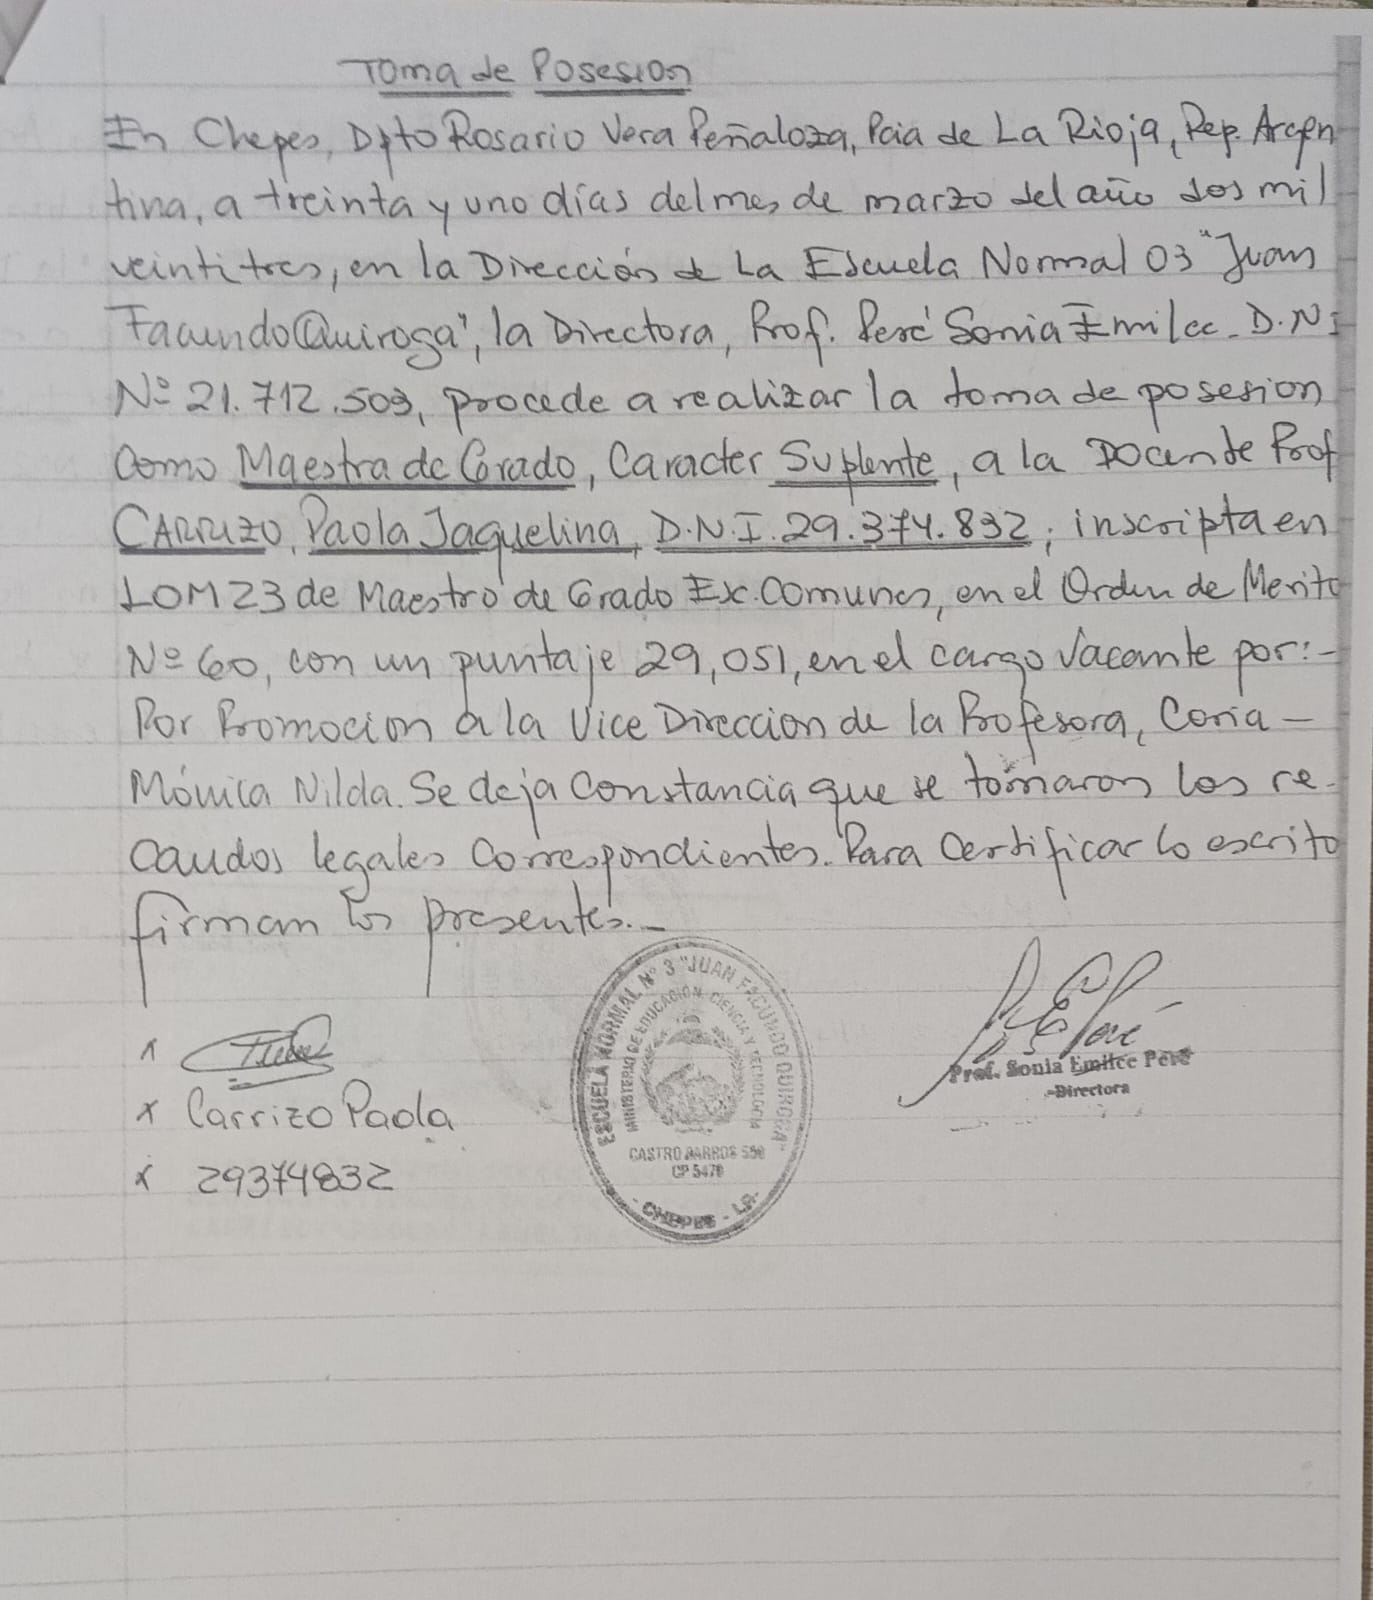 Toma de Posesion
En Chepes, Dpto Rosario Vera Peñaloza, Pcia de La Rioja, Rep. Argen
tina, a treinta y uno días del mes de marzo del año dos mil
veintitres, en la Dirección de La Escuela Normal 03 "Juan
Facundo Quiroga", la Directora, Prof. Peré Sonia Emilce. D.N.I
Nº 21.712.503, procede a realizar la toma de posesion
como Maestra de Grado, Caracter Suplente, a la Docente Prof
CARRIZO, Paola Jaquelina, D.N.I. 29.374.832; inscripta en
LOM 23 de Maestro de Grado Ex. Comunes, en el Orden de Merito
Nº 60, con un puntaje 29,051, en el cargo Vacante por:-
Por Promocion a la Vice Direccion de la Profesora, Coria -
Mónica Nilda. Se deja Constancia que se tomaron los re-
caudos legales Correspondientes. Para Certificar lo escrito
firman los presentes.-
ESCUELA NORMAL Nº 3 "JUAN FACUNDO QUIROGA"
MINISTERIO DE EDUCACION, CIENCIA Y TECNOLOGIA
x
x Carrizo Paola
x 29374832
CASTRO BARROS 550
CP 5470
- CHEPES - LR -
Peré
Prof. Sonia Emilce Peré
-Directora